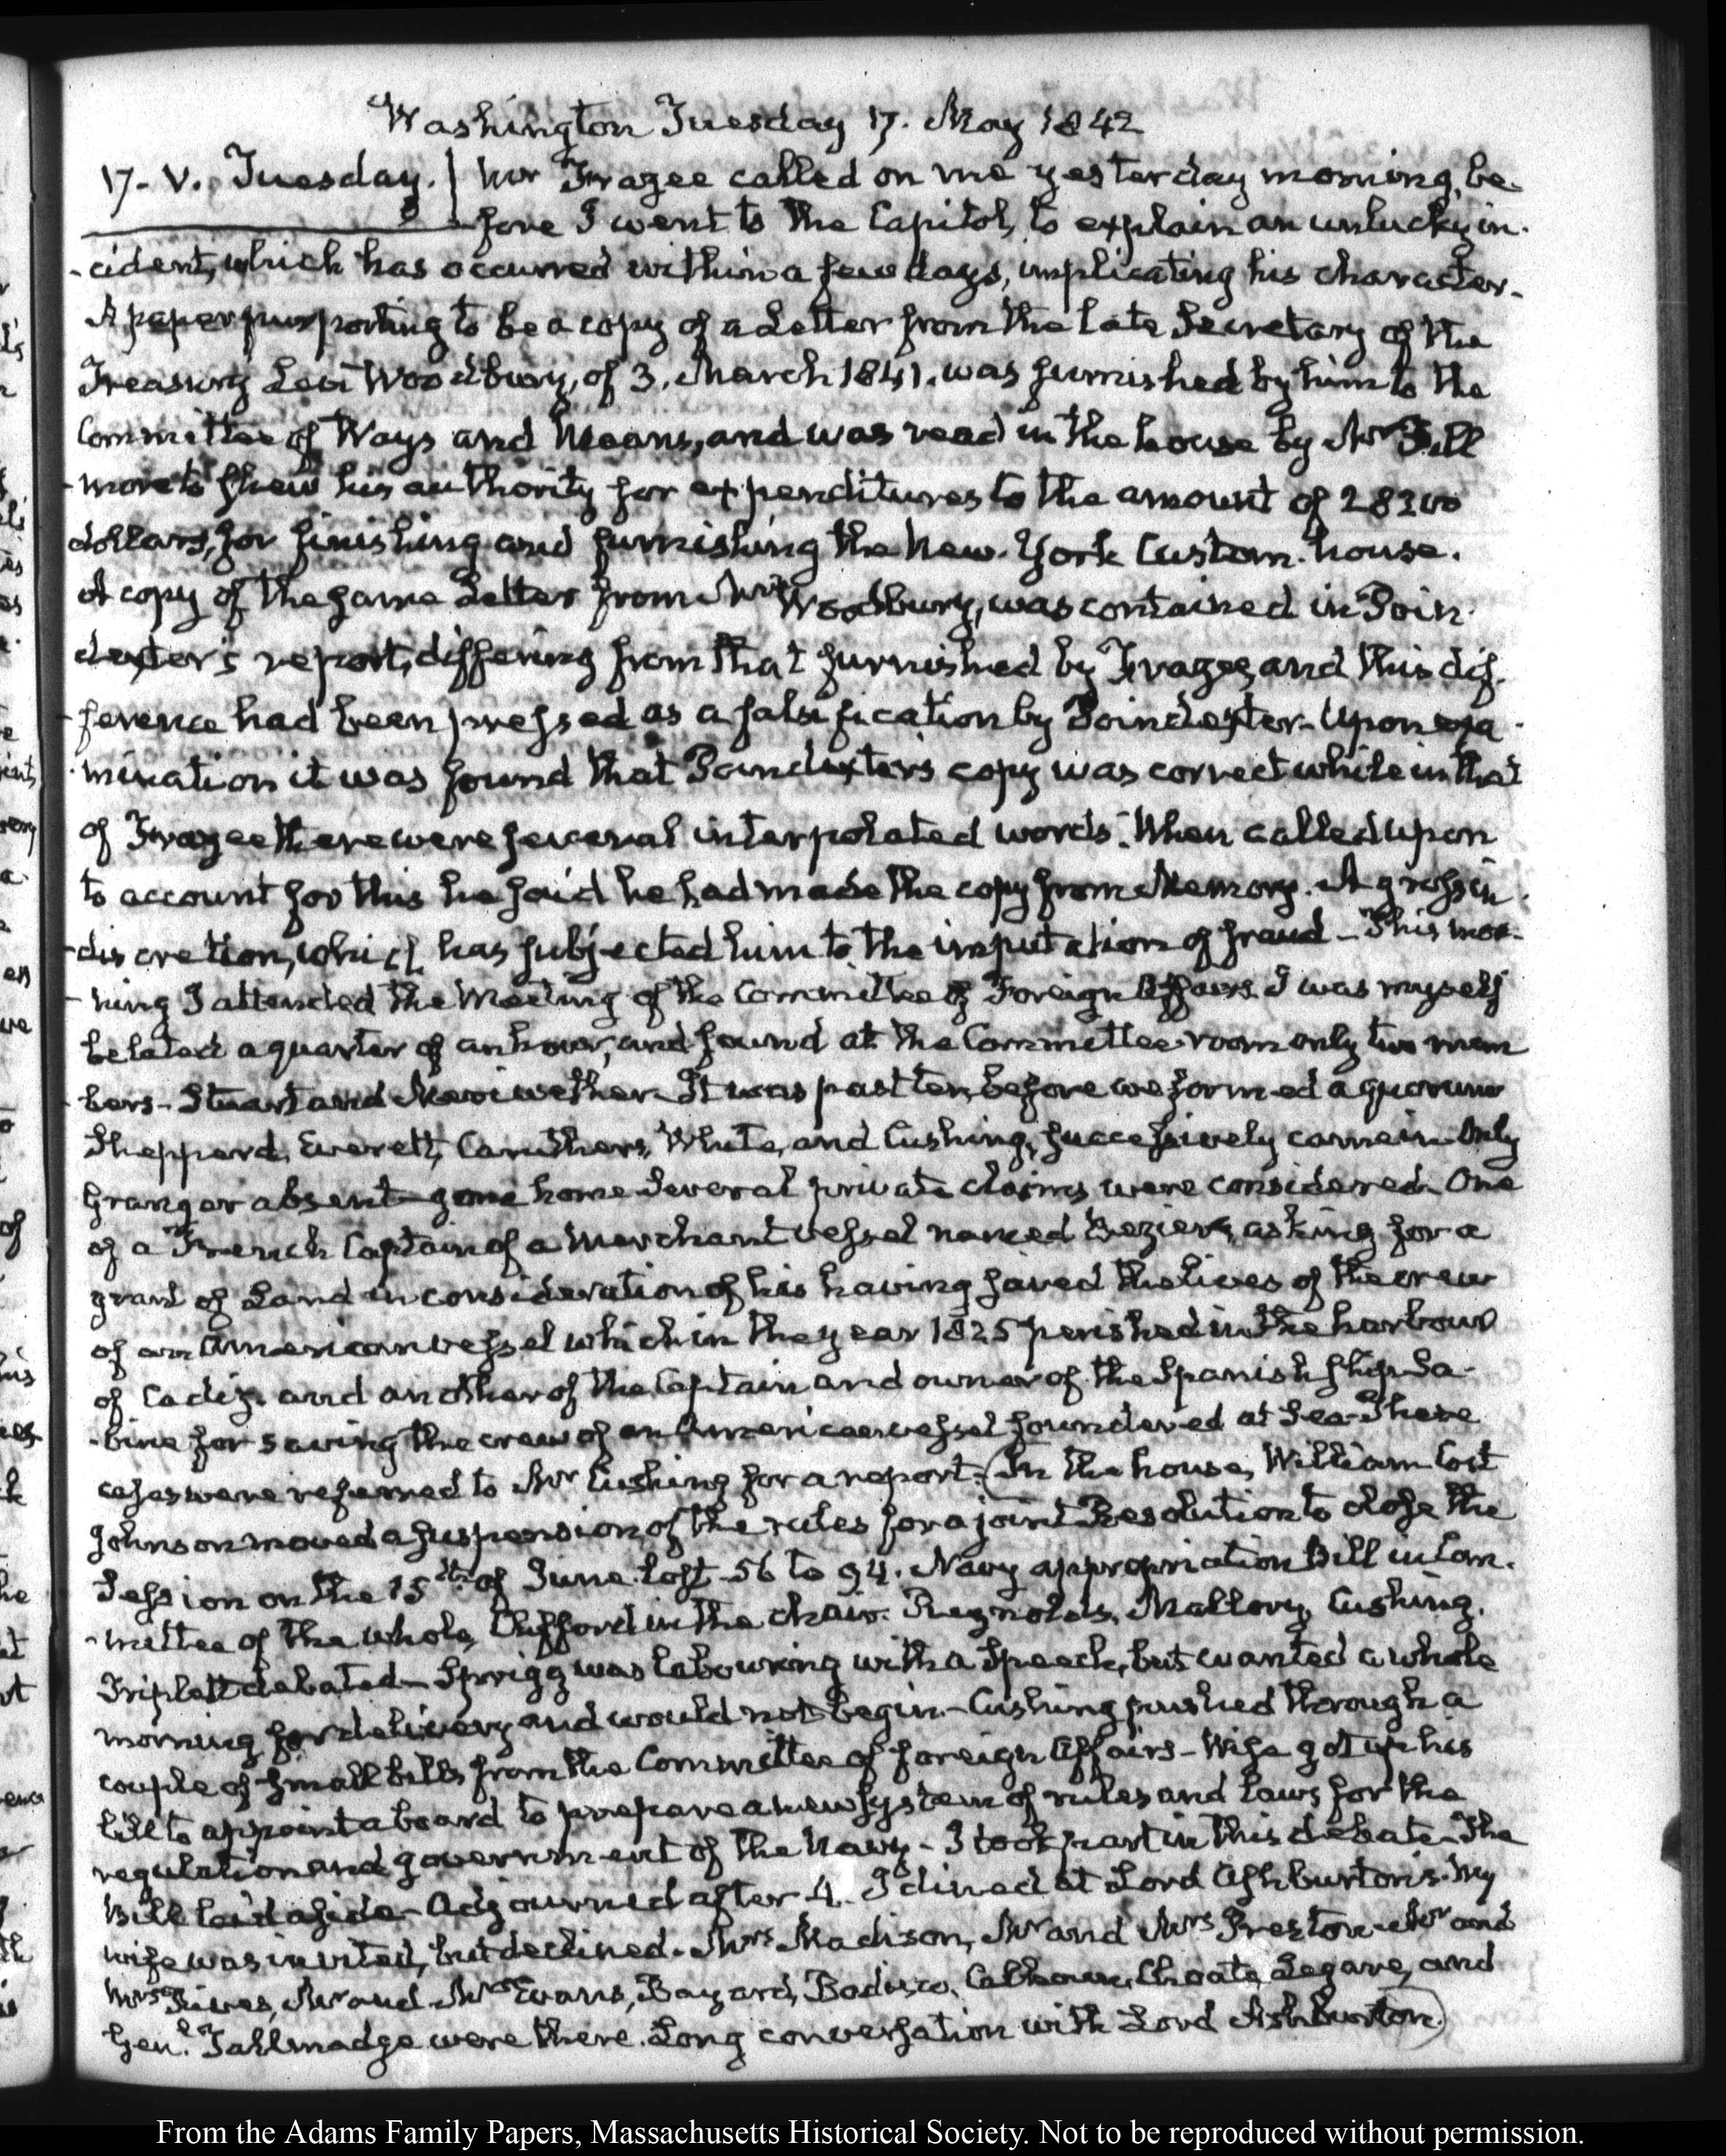 Washington Tuesday 17. May 1842
17. V. Tuesday. | Mr Frazee called on me yesterday morning, be-
fore I went to the Capitol, to explain an unlucky in-
-cident, which has occurred within a few days, implicating his character.
A paper purporting to be a copy of a Letter from the late Secretary of the
Treasury Levi Woodbury, of 3. March 1841. was furnished by him to the
Committee of Ways and Means, and was read in the house by Mr Fill
-more to shew his authority for expenditures to the amount of 28200
dollars, for finishing and furnishing the New-York Custom-house.
A copy of the same Letter from Mr Woodbury, was contained in Poin-
dexter's report, differing from that furnished by Frazee, and this dif-
-ference had been pressed as a falsification by Poindexter- Upon exa-
-mination it was found that Poindexter's copy was correct while in that
of Frazee there were several interpolated words. When called upon
to account for this he said he had made the copy from Memory. A gross in-
-discretion, which has subjected him to the imputation of fraud - This mor-
-ning I attended the Meeting of the Committee of Foreign Affairs. I was myself
belated a quarter of an hour, and found at the Committee room only two mem
-bers- Stuart and Meriwether- It was past ten, before we formed a quorum
Sheppard, Everett, Caruthers, White, and Cushing, successively came in- Only
Granger absent- gone home- Several private claims were considered- One
of a French Captain of a Merchant vessel named Bezier, asking for a
grant of Land in consideration of his having saved the lives of the crew
of an American vessel which in the year 1825 perished in the harbour
of Cadiz. and another of the Captain and owner of the Spanish ship Sa-
-bine for saving the crew of an American vessel foundered at Sea- These
cases were referred to Mr Cushing for a report. (In the house, William Cost
Johnson moved a suspension of the rules for a joint Resolution to close the
Session on the 15th of June. lost 56 to 94. Navy appropriation Bill in Com-
-mittee of the whole, Clifford in the chair. Reynolds, Mallory, Cushing,
Triplett debated- Sprigg was labouring with a Speech, but wanted a whole
morning for delivery and would not begin- Cushing pushed through a
couple of small bills from the Committee of foreign Affairs- Wise got up his
bill to appoint a board to prepare a new system of rules and laws for the
regulation and government of the Navy- I took part in this debate- The
Bill laid aside- Adjourned after 4. I dined at Lord Ashburton's. My
wife was invited, but declined. Mrs Madison, Mr and Mrs Preston- Mr and
Mrs Rives, Mr and Mrs Evans, Bayard, Bodisco, Calhoun, Choate, Legare, and
Genl. Tallmadge were there. Long conversation with Lord Ashburton.)
From the Adams Family Papers, Massachusetts Historical Society. Not to be reproduced without permission.